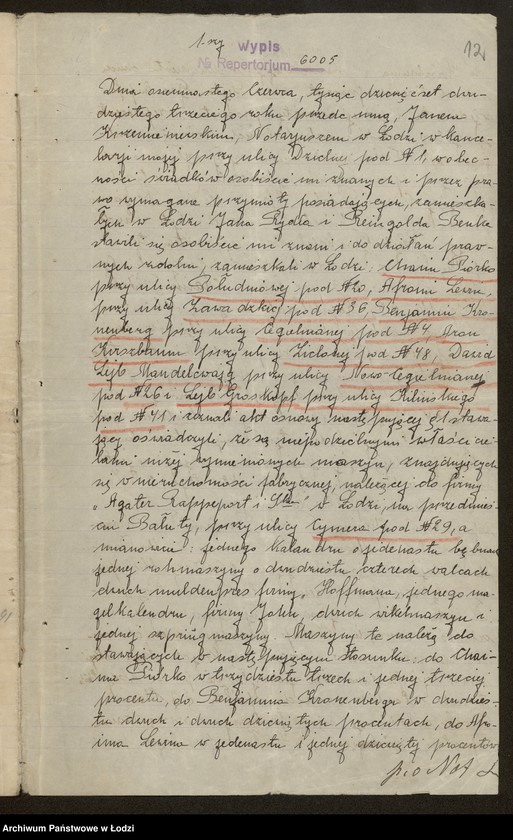 1-szy Wypis
№ Repertorjum 6005
12
Dnia osiemnastego Czerwca, tysiąc dziewięćset dwu-
dziestego trzeciego roku przede mną, Janem
Krzemieniewskim, Notarjuszem w Łodzi w kance-
larji mojej przy ulicy Dzielnej pod № 1, w obec-
ności świadków osobiście mi znanych i przez pra-
wo wymagane przymioty posiadających, zamieszka-
łych w Łodzi Jana Rydla i Reingolda Benke
stawili się osobiście mi znani i do działań praw-
nych zdolni, zamieszkali w Łodzi: Chaim Piórko
przy ulicy Południowej pod № 20, Afroim Lewin,
przy ulicy Zawadzkiej pod № 36, Benjamin Kro-
nenberg przy ulicy Cegielnianej pod № 4, Aron
Kirszbaum przy ulicy Zielonej pod № 48, Dawid
Lejb Mandelcwajg przy ulicy Nowo-Cegielnianej
pod № 26 i Lejb Groskopf przy ulicy Kilińskiego
pod № 41 i zeznali akt osnowy następującej: § 1. stawa-
jący oświadczyli, że są niepodzielnymi właścicie-
lami niżej wymienionych maszyn, znajdujących
się w nieruchomości fabrycznej, należącej do firmy
"Agater Rappeport i S-ka" w Łodzi, na przedmieś-
ciu Bałuty, przy ulicy Cymera pod № 29, a
mianowicie: jednego kalandru o jedenastu
jednej rohmaszyny o dwudziestu czterech walcach
dwuch muldenpres firmy, Hoffmana, jednego ma-
gelkalendru, firmy John, dwuch wikelmaszyn i
jednej szpringmaszyny. Maszyny te należą do
stawających w następującym stosunku: do Chai-
ma Piórko w trzydziestu trzech i jednej trzeciej
procentu, do Benjamina Kronenberga w dwudzies-
tu dwuch i dwuch dziewiętych procentach, do Afro-
ima Lewina w jedenastu i jednej dziewiętej procentów
p. o Not